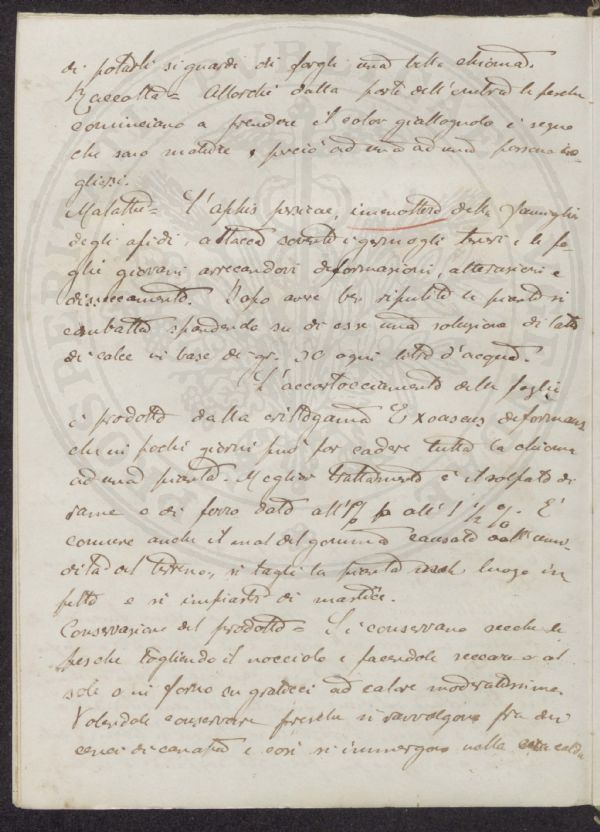 di potarli si guardi di fargli una bella chioma.
Raccolta = Allorchè dalla parte dell'ombra le pesche
cominciano a prendere il color giallognolo è segno
che sono mature e perciò ad una ad una possono co-
gliersi.
Malattie = L'aphis persicae, imenottero della famiglia
degli afidi, attacca sovente i germogli teneri e le fo-
glie giovani arrecandovi deformazioni, alterazioni e
disseccamento. Dopo aver ben ripulite le piante si
combatte spandendo su di esse una soluzione di latte
di calce in base di gr. 30 ogni litro d'acqua.
L'accartocciamento delle foglie
è prodotto dalla crittogama Exoascus deformans
che in pochi giorni può far cadere tutta la chioma
ad una pianta. Miglior trattamento è il solfato di
rame e di ferro dato all'1% o all' 1 ½ %. È
comune anche il mal del gomma causato dall'umi-
dità del terreno, si tagli la pianta nel luogo in
fetto e si impiastri di mastice.
Conservazione del prodotto = Si conservano secche le
pesche togliendo il nocciolo e facendole seccare o al
sole o in forno su graticci ad calore moderatissimo
Volendole conservare fresche si ravvolgono fra due
cenci di canapa e così si immergono nella cera calda